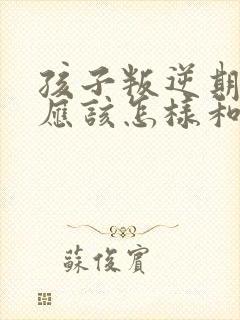 孩子叛逆期
應該怎樣和
蘇俊賓